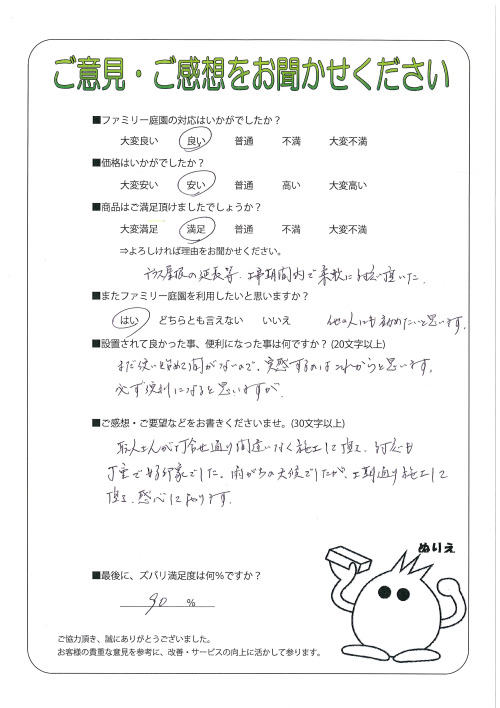 ご意見・ご感想をお聞かせください
■ファミリー庭園の対応はいかがでしたか？
大変良い 良い 普通 不満 大変不満
■価格はいかがでしたか？
大変安い 安い 普通 高い 大変高い
■商品はご満足頂けましたでしょうか？
大変満足 満足 普通 不満 大変不満
⇒よろしければ理由をお聞かせください。
テラス屋根の延長等、工事期間内で柔軟に対応頂いた。
■またファミリー庭園を利用したいと思いますか？
はい どちらとも言えない いいえ 他の人にも勧めたいと思います。
■設置されて良かった事、便利になった事は何ですか？(20文字以上)
まだ使い始めて間がないので、実感するのはこれからと思います。
必ず便利になると思いますが。
■ご感想・ご要望などをお書きくださいませ。(30文字以上)
職人さんが打合せ通り間違いなく施工して頂き、対応も
丁寧で好印象でした。雨がちの天候でしたが、工期通り施工して
頂き、感心しております。
ぬりえ
■最後に、ズバリ満足度は何％ですか？
90 ％
ご協力頂き、誠にありがとうございました。
お客様の貴重な意見を参考に、改善・サービスの向上に活かして参ります。